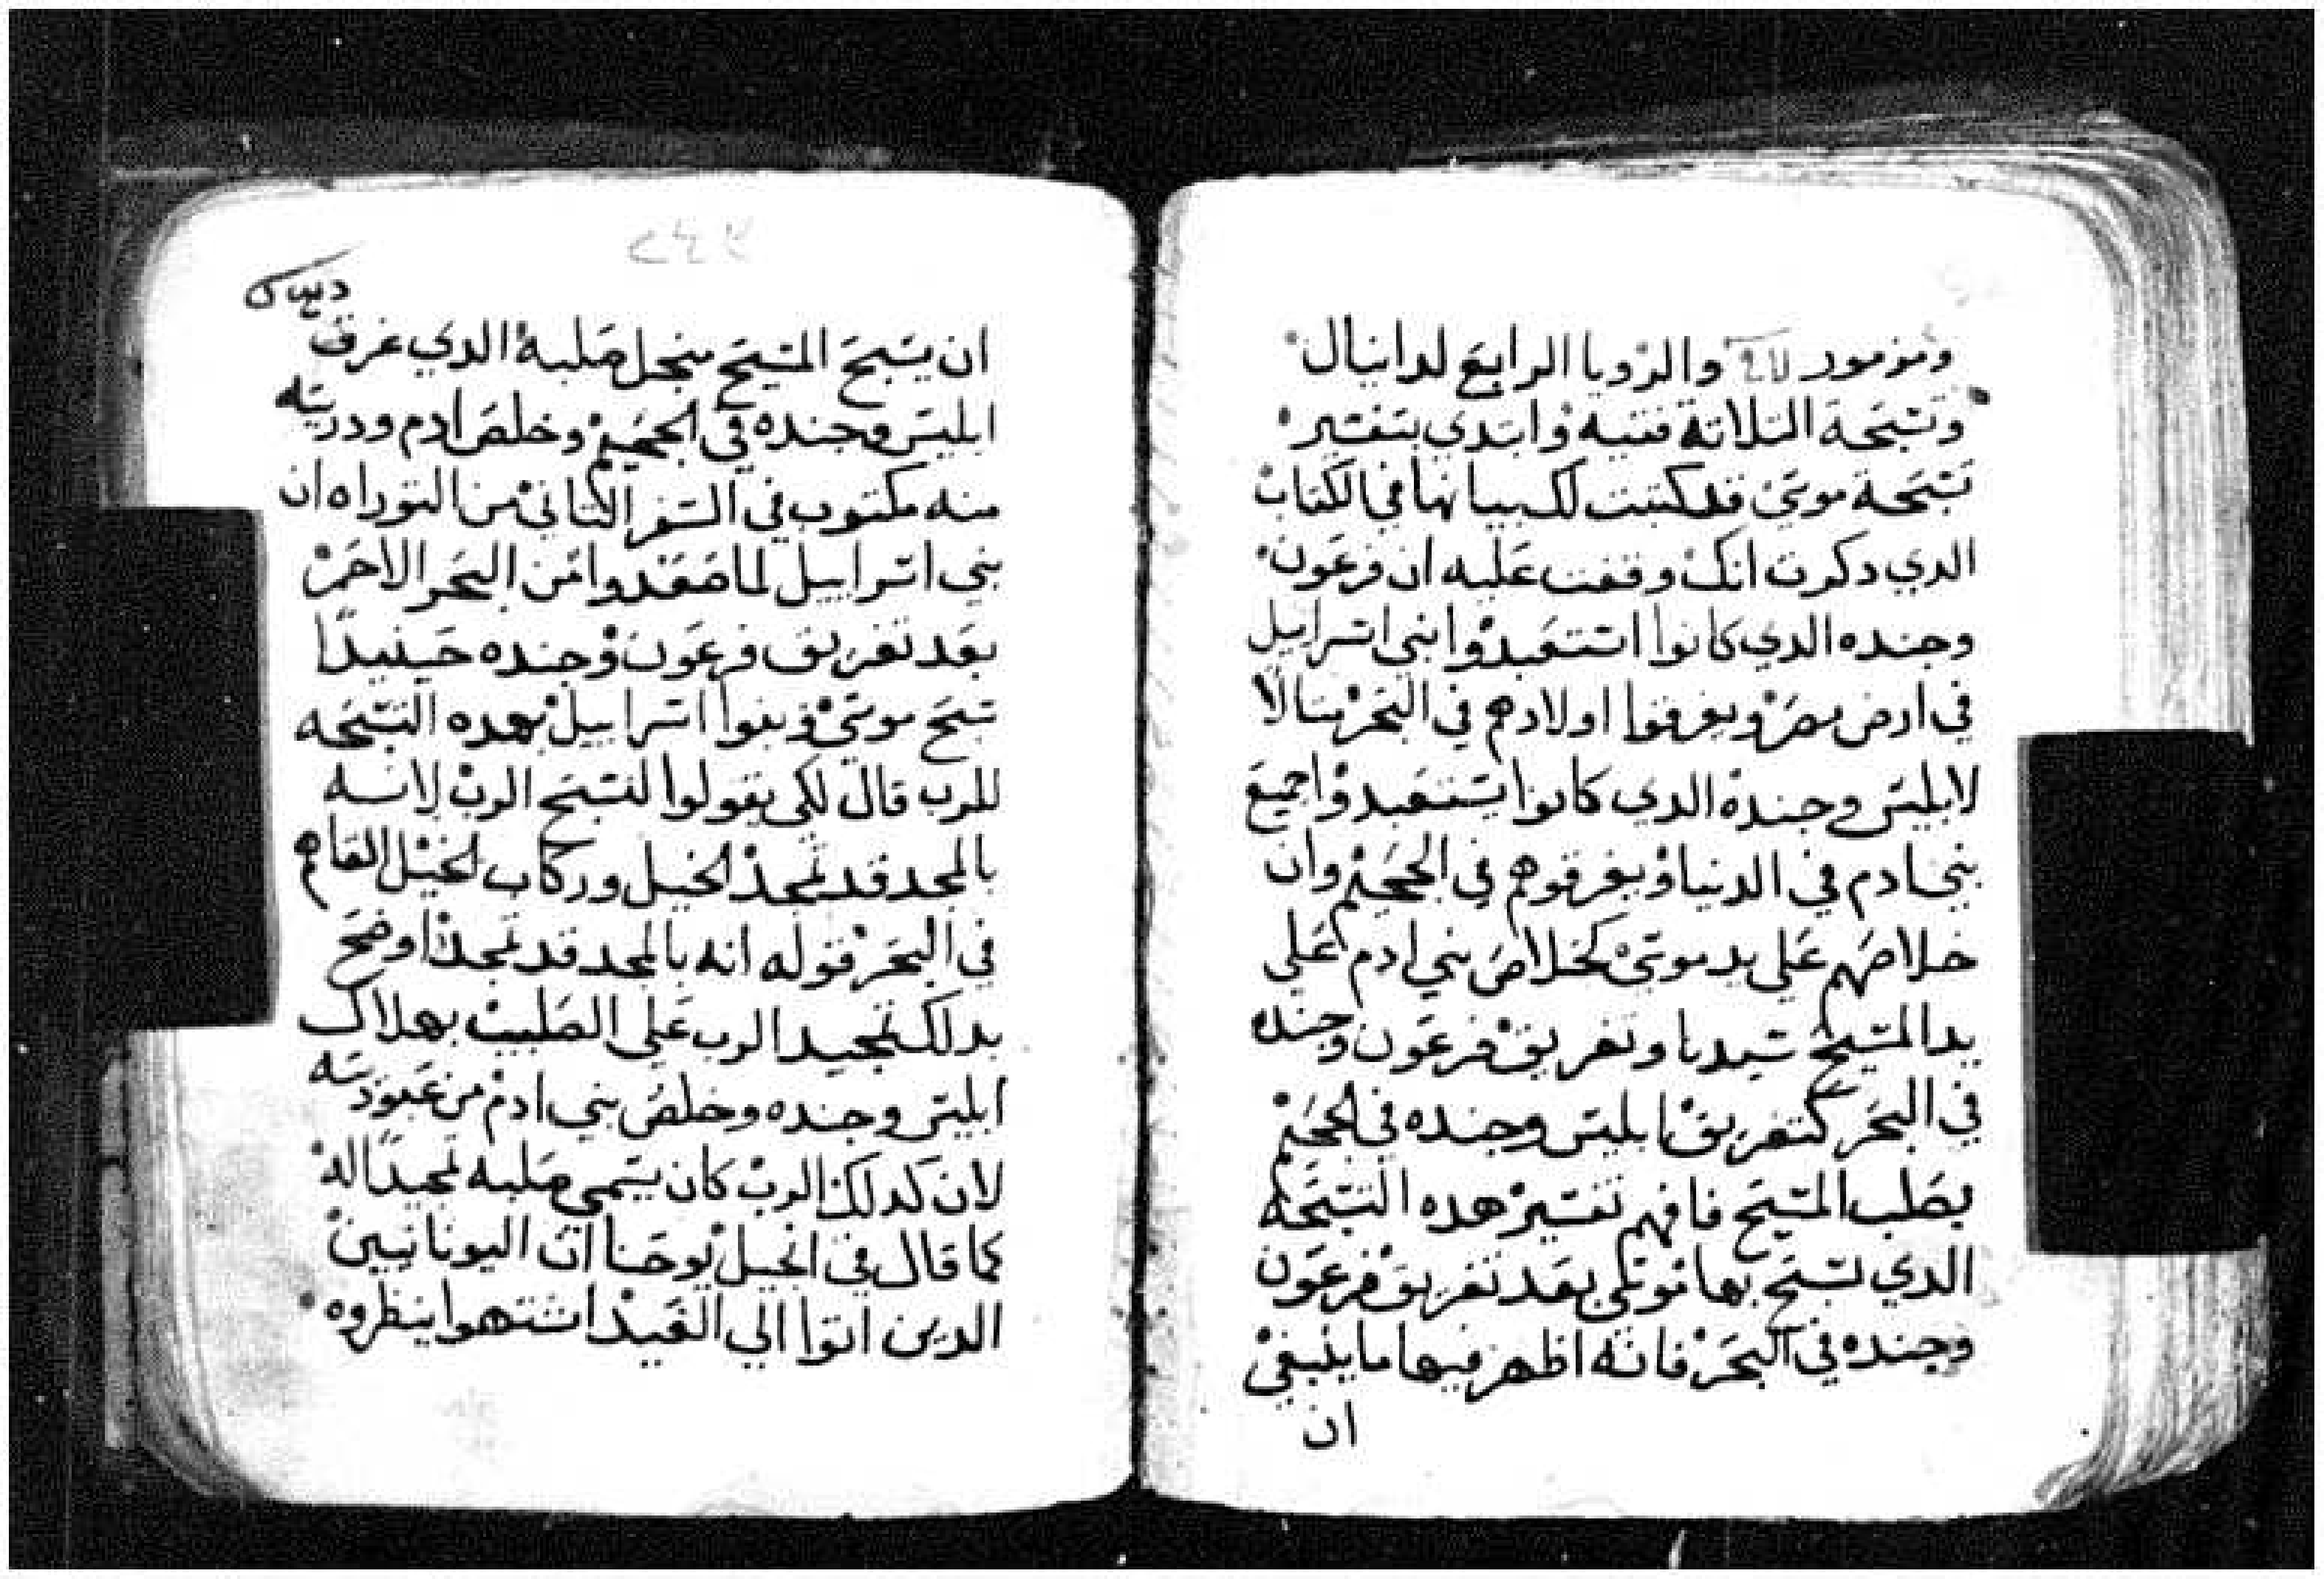 ومزمور والرويا الرابع لدانيال
وتسبحة التلاتة فتيه وابتدي بتفسير
تسبحة موسى قد كتبت لك بيانها في الكتاب
الدي دكرت انك وقفت عليه ان فرعون
وجنده الدي كانوا استعبدوا بني اسراييل
في ارض مصر ويغرقوا اولادهم في البحر متالا
لابليس وجنده الدي كانوا يستعبدوا جميع
بني ادم في الدنيا ويغرقوهم في الجحيم وان
خلاصهم علي يد موسى كخلاص بني ادم علي
يد المسيح سيدنا وتغريق فرعون وجنده
في البحر كتغريق ابليس وجنده في الجحيم
بصلب المسيح فافهم تفسير هده التسبحة
الدي تسبح بها موسى بعد تغريق فرعون
وجنده في البحر فانه اظهر فيها ما ينبغي
ان
ان يسبح المسيح منجل صلبه الدي غرق
ابليس وجنده في الجحيم وخلص ادم ودريته
منه مكتوب في السفر التاني من التوراه ان
بني اسراييل لما صعدوا من البحر الاحمر
بعد تغريق فرعون وجنده حينيدا
سبح موسى وبنوا اسراييل بهده التسبحه
للرب قال لكي يقولوا لنسبح الرب لانه
بالمجد قد تمجد الخيل وركاب الخيل القاهم
في البحر قوله انه بالمجد قد تمجد اوضح
بدلك تمجيد الرب علي الصليب بهلاك
ابليس وجنده وخلص بني ادم من عبوديته
لان كدلك الرب كان يسمي صلبه تمجيدا له
كما قال في انجيل يوحنا ان اليونانيين
الدين اتوا الي العيد اشتهوا ينظروه